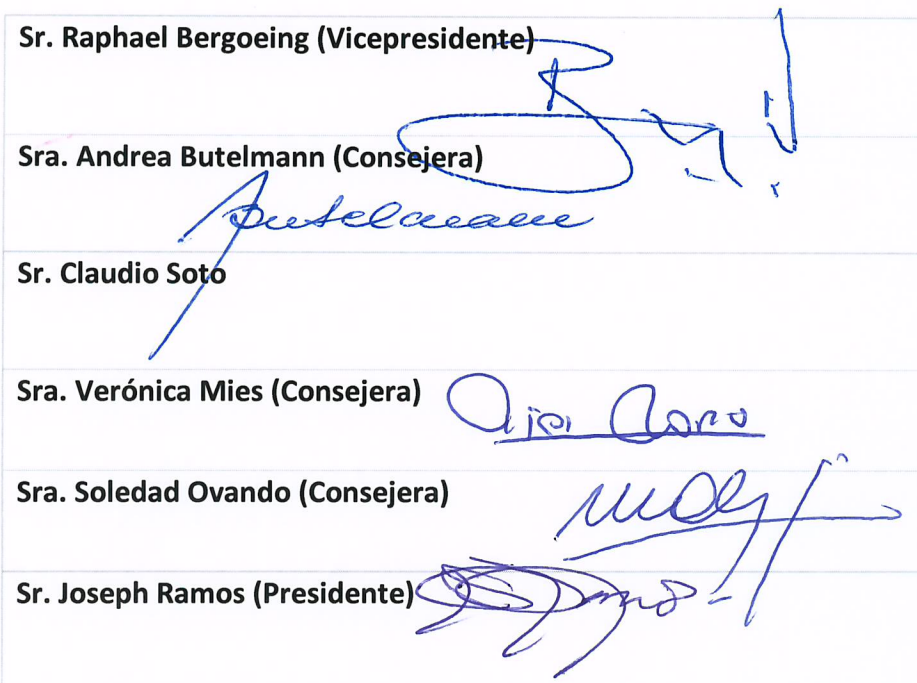 Sr. Raphael Bergoeing (Vicepresidente)
Sra. Andrea Butelmann (Consejera)
Butelmann
Sr. Claudio Soto
Sra. Verónica Mies (Consejera)
Sra. Soledad Ovando (Consejera)
Sr. Joseph Ramos (Presidente)